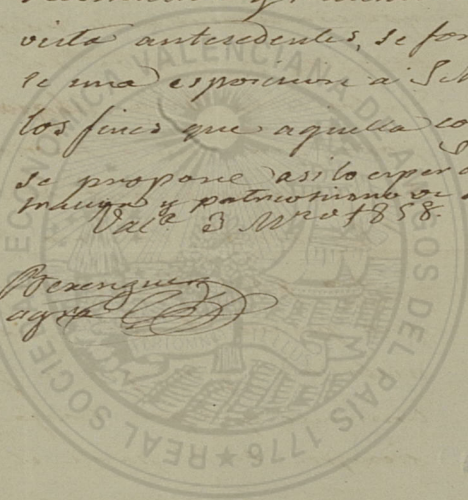 vista antecedentes, se for
se una esposicion a S. M.
los fines que aquella co
se propone asi lo espera
y patriotismo de
Valª 3 Mzo 1858.
Berenguer
REAL SOCIEDAD ECONOMICA VALENCIANA DE AMIGOS DEL PAIS 1776